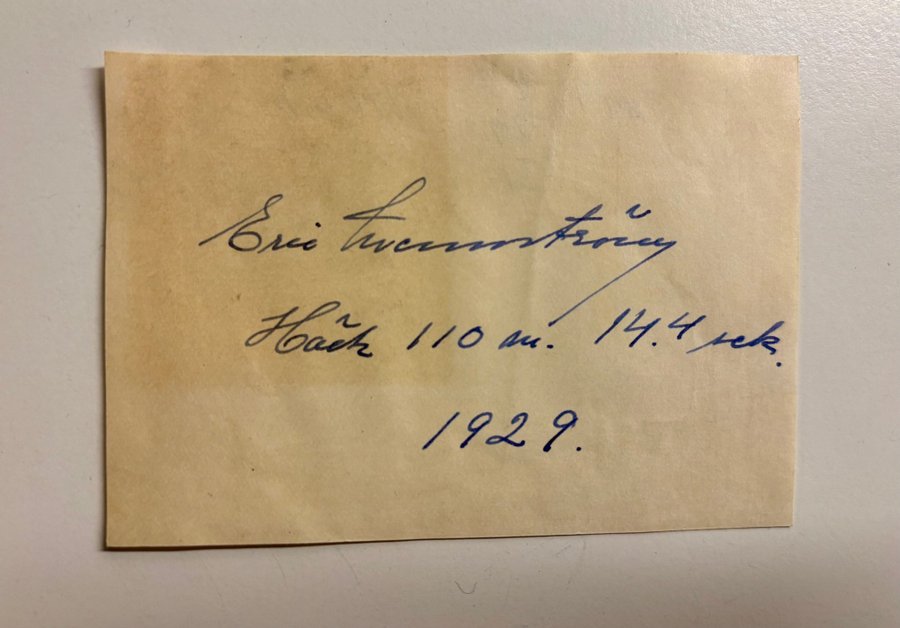 Eric Wennström
Häck 110 m. 14.4 sek.
1929.